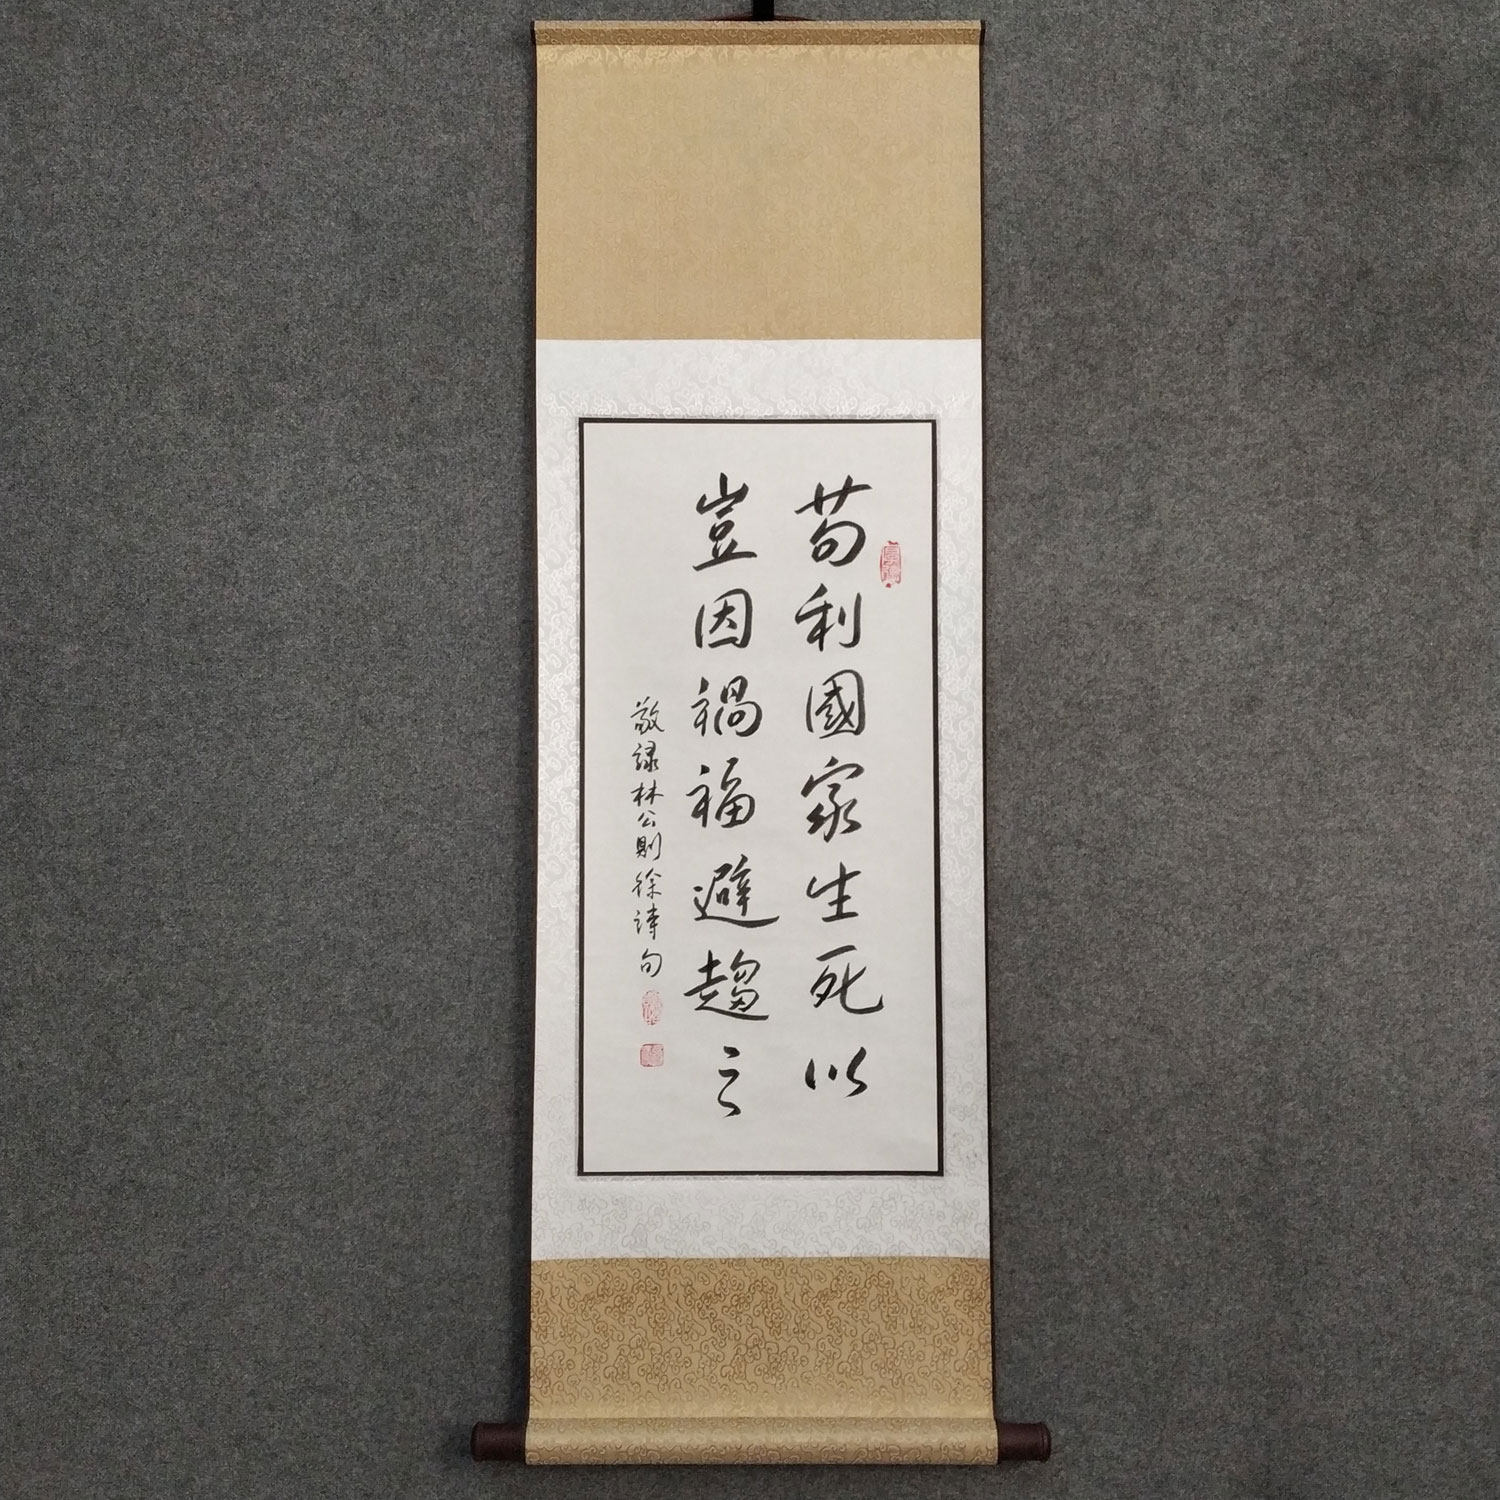 苟利國家生死以
豈因禍福避趨之
敬錄林公則徐詩句